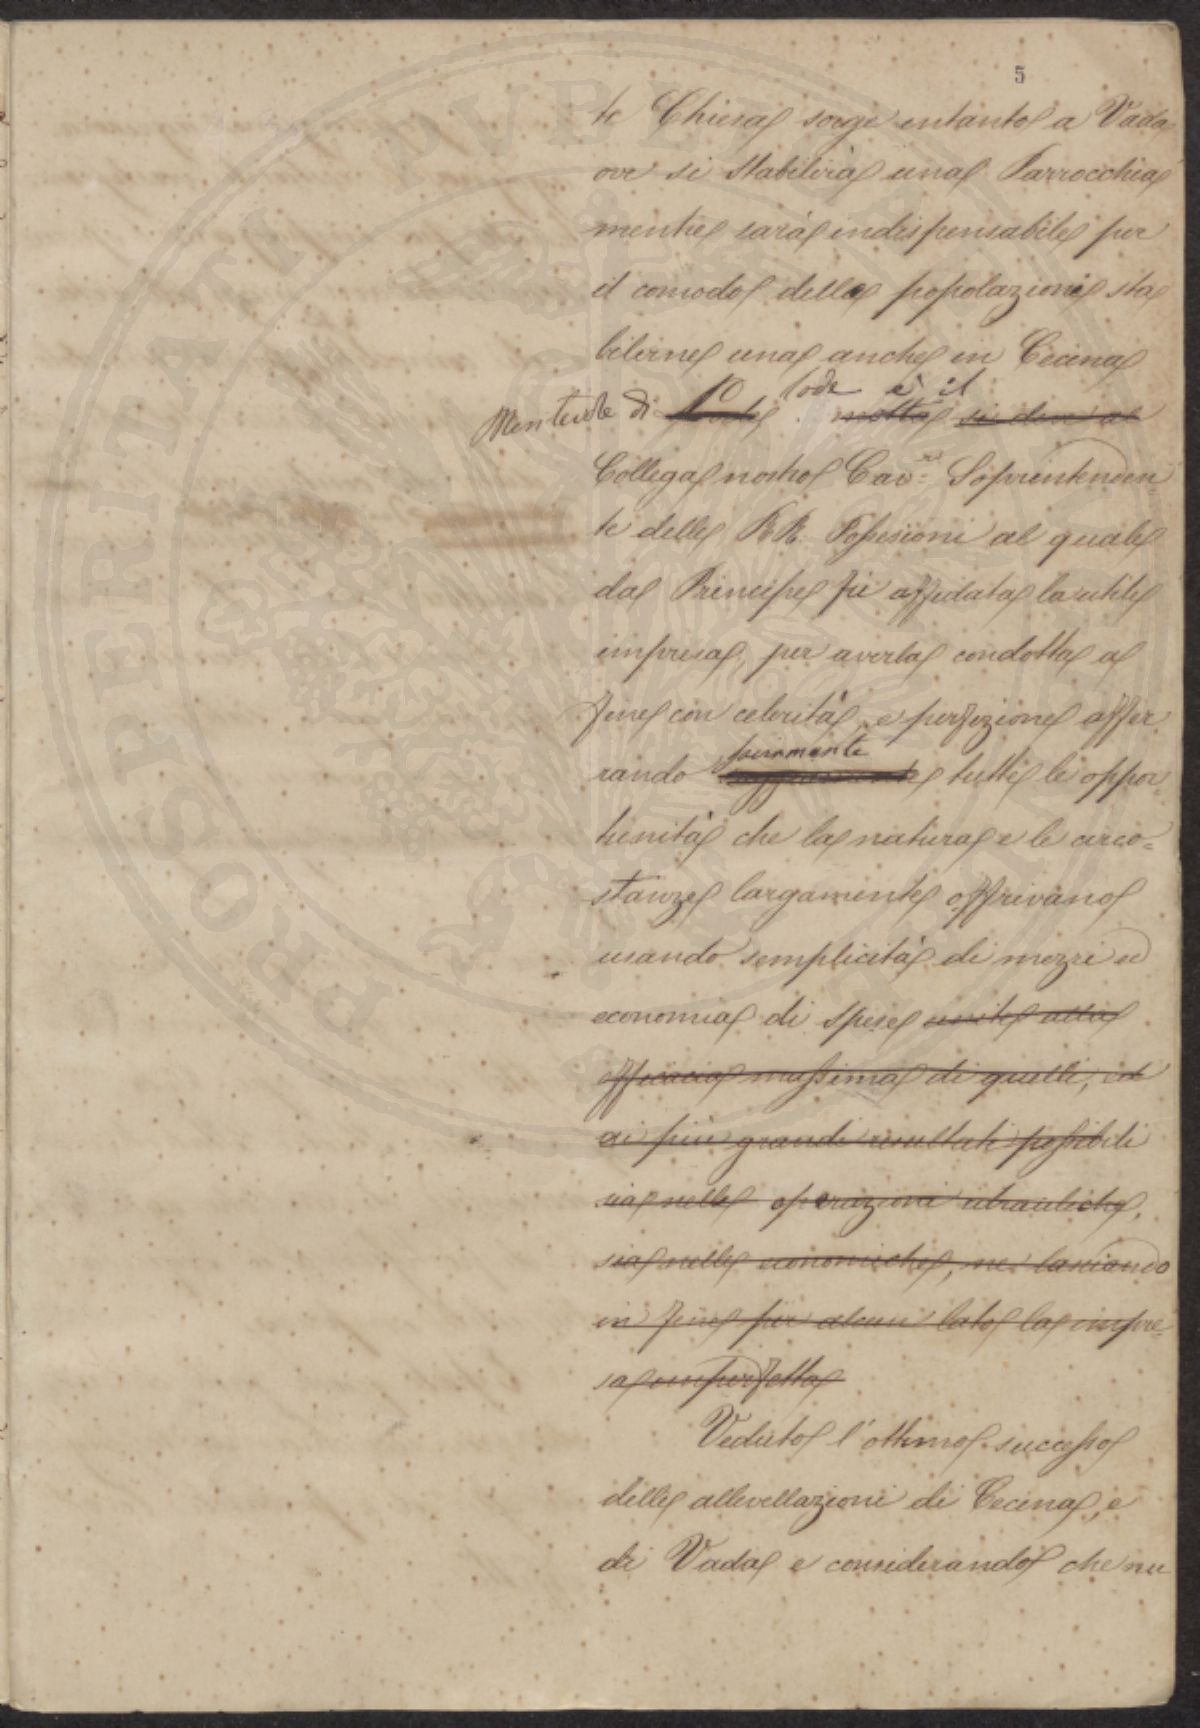 5
te Chiesa sorge intanto a Vada
ove si stabilirà una Parrocchia
mentre sarà indispensabile per
il comodo della popolazione sta
bilirne una anche in Cecina
lode è il
Meritevole di molta si deve al
Collega nostro Cav.re Soprintenden
te delle RR. Possesioni al quale
dal Principe fù affidata la utile
impresa, per averla condotta a
fine con celerità, e perfezione affer
pienamente
rando tutte le oppor
tunità che la natura e le circo=
stanze largamente offrivano
usando semplicità di mezzi ed
economia di spese unite alla
efficacia massima di quelli, ed
ai più grandi resultati possibili
sia nelle operazioni idrauliche,
sia nelle economiche, ne lasciando
in fine per alcun lato la impre=
sa imperfetta
Veduto l'ottimo successo
delle allivellazioni di Cecina, e
di Vada e considerando che nu
PROSPERITATI PVBLICAE